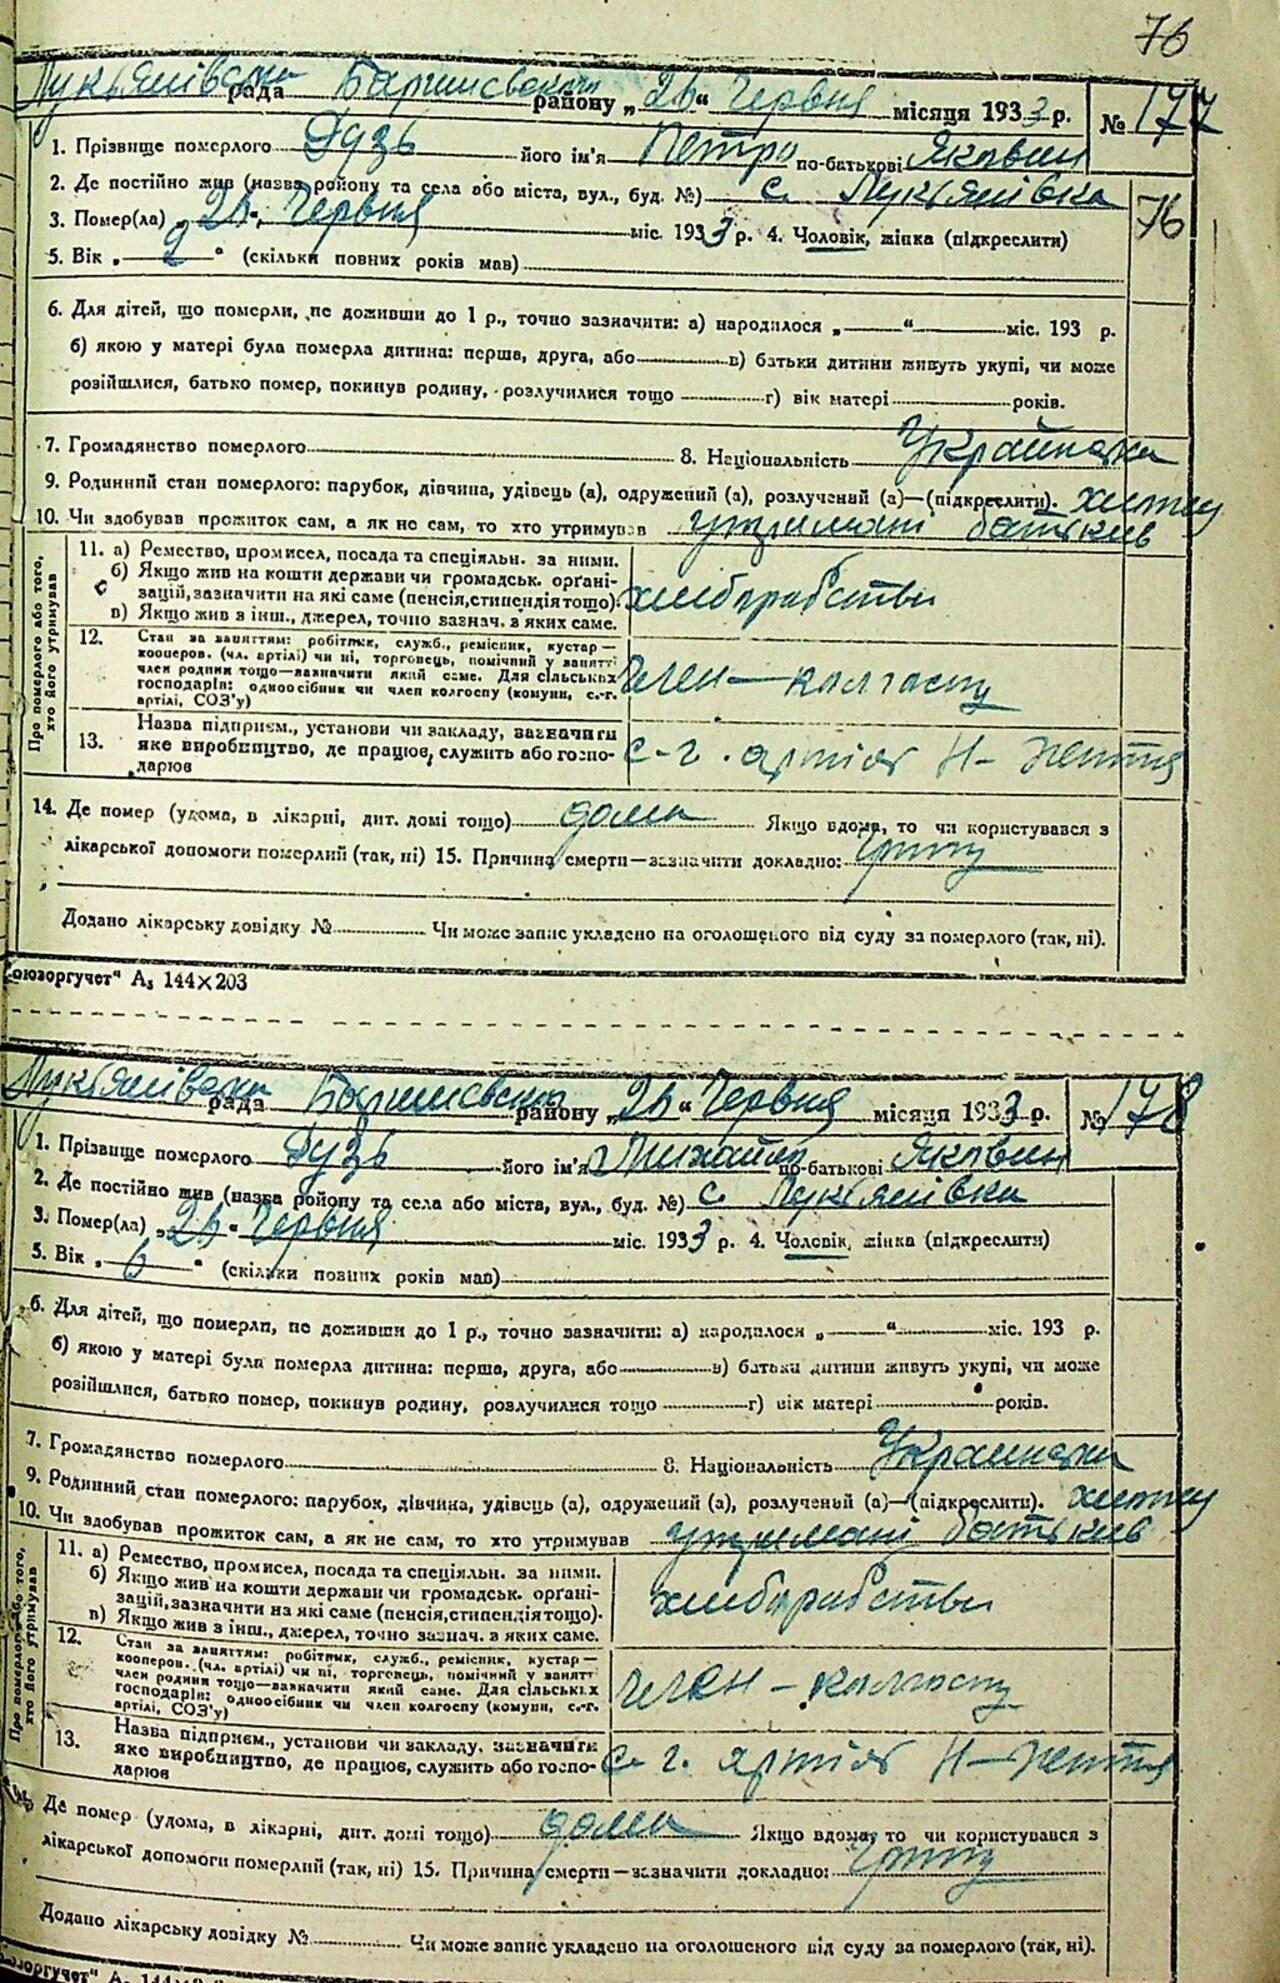 76
Лукьянівська рада Баришевського району „26“ Червня місяця 1933 р. № 177
1. Прізвище померлого Гудзь його ім'я Петро по-батькові Якович
2. Де постійно жив (назва району та села або міста, вул., буд. №) с. Лукьянівка
76
3. Помер(ла) „26“ Червня міс. 1933 р. 4. Чоловік, жінка (підкреслити)
5. Вік „2“ (скільки повних років мав)
6. Для дітей, що померли, не доживши до 1 р., точно зазначити: а) народилося „ “ міс. 193 р.
б) якою у матері була померла дитина: перша, друга, або в) батьки дитини живуть укупі, чи може
розійшлися, батько помер, покинув родину, розлучилися тощо г) вік матері років.
7. Громадянство померлого 8. Національність
9. Родинний стан померлого: парубок, дівчина, удівець (а), одружений (а), розлучений (а)—(підкреслити).
10. Чи здобував прожиток сам, а як не сам, то хто утримував утримані батьків
Про померлого або того, хто його утримував
11. а) Ремество, промисел, посада та спеціяльн. за ними.
б) Якщо жив на кошти держави чи громадськ. орґані-
зацій, зазначити на які саме (пенсія, стипендія тощо).
в) Якщо жив з інш., джерел, точно зазнач. з яких саме.
хліборобство
12. Стан за заняттям: робітник, служб., ремісник, кустар—
кооперов. (чл. артілі) чи ні, торговець, помічний у занятті
член родини тощо—зазначити який саме. Для сільських
господарів: одноосібник чи член колгоспу (комуни, с.-г.
артілі, СОЗ'у)
член — колгоспу
13. Назва підприєм., установи чи закладу, зазначити
яке виробництво, де працює, служить або госпо-
дарює
с-г. артіль Н-життя
14. Де помер (удома, в лікарні, дит. домі тощо) дома Якщо вдома, то чи користувався з
лікарської допомоги померлий (так, ні) 15. Причина смерти—зазначити докладно:
Додано лікарську довідку № Чи може запис укладено на оголошеного від суду за померлого (так, ні).
оюзоргучет" А₅ 144×203
Лукьянівська рада Баришевського району „26“ Червня місяця 1933 р. № 178
1. Прізвище померлого Гудзь його ім'я Михайло по-батькові Якович
2. Де постійно жив (назва району та села або міста, вул., буд. №) с. Лукьянівка
3. Помер(ла) „26“ Червня міс. 1933 р. 4. Чоловік, жінка (підкреслити)
5. Вік „6“ (скільки повних років мав)
6. Для дітей, що померли, не доживши до 1 р., точно зазначити: а) народилося „ “ міс. 193 р.
б) якою у матері була померла дитина: перша, друга, або в) батьки дитини живуть укупі, чи може
розійшлися, батько помер, покинув родину, розлучилися тощо г) вік матері років.
7. Громадянство померлого 8. Національність
9. Родинний стан померлого: парубок, дівчина, удівець (а), одружений (а), розлучений (а)—(підкреслити).
10. Чи здобував прожиток сам, а як не сам, то хто утримував утримані батьків
Про померлого або того, хто його утримував
11. а) Ремество, промисел, посада та спеціяльн. за ними.
б) Якщо жив на кошти держави чи громадськ. орґані-
зацій, зазначити на які саме (пенсія, стипендія тощо).
в) Якщо жив з інш., джерел, точно зазнач. з яких саме.
хліборобство
12. Стан за заняттям: робітник, служб., ремісник, кустар—
кооперов. (чл. артілі) чи ні, торговець, помічний у занятті
член родини тощо—зазначити який саме. Для сільських
господарів: одноосібник чи член колгоспу (комуни, с.-г.
артілі, СОЗ'у)
член — колгоспу
13. Назва підприєм., установи чи закладу, зазначити
яке виробництво, де працює, служить або госпо-
дарює
с-г. артіль Н-життя
Де помер (удома, в лікарні, дит. домі тощо) дома Якщо вдома, то чи користувався з
лікарської допомоги померлий (так, ні) 15. Причина смерти—зазначити докладно:
Додано лікарську довідку № Чи може запис укладено на оголошеного від суду за померлого (так, ні).